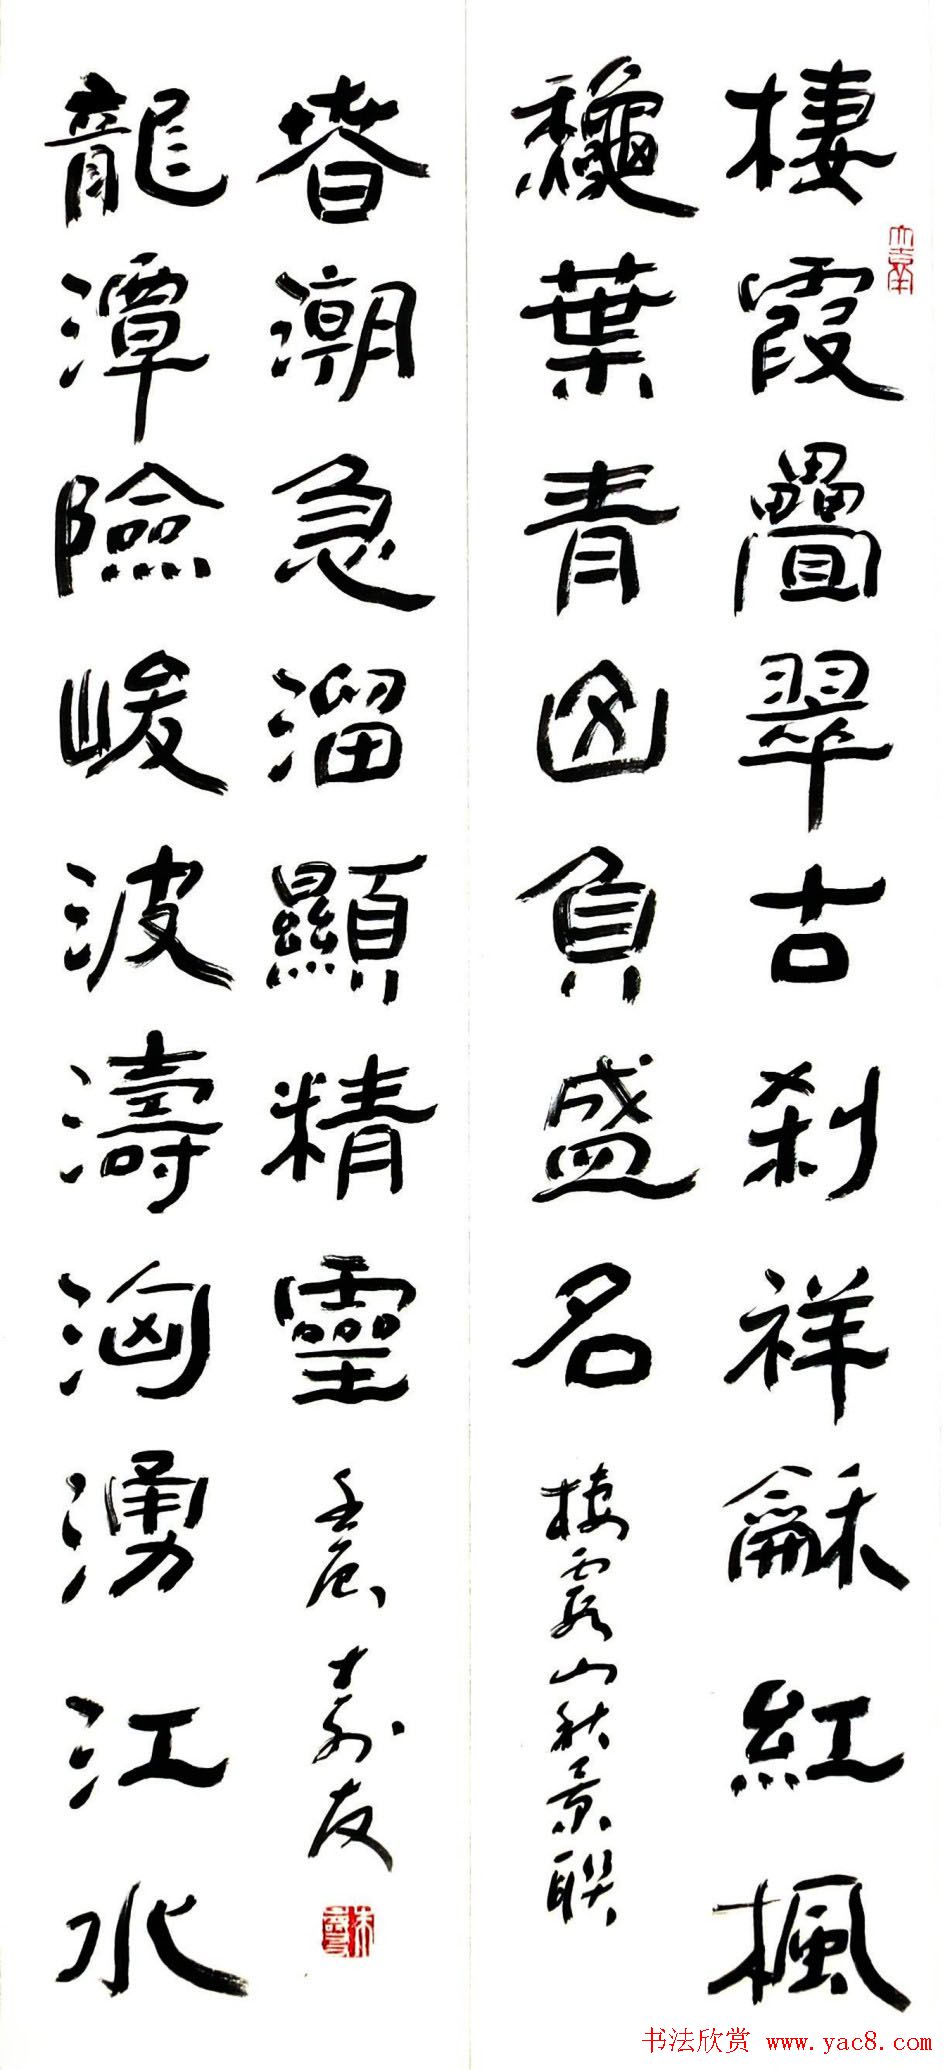 棲霞疊翠古刹祥龢紅楓
龝葉青山負盛名
棲霞山秋景聯
龍潭險峻波濤洶湧江水
春潮急溜顯精靈
壬辰 壽友
大吉羊
书法欣赏 www.yac8.com